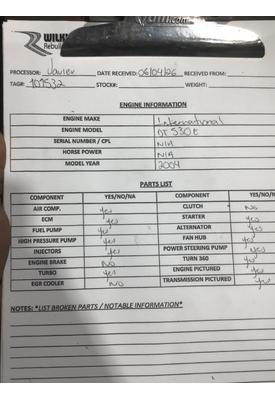 WILK
Rebuil
PROCESSOR: Javier DATE RECEIVED: 06/04/26 RECEIVED FROM:
TAG#: 107532 STOCK#: WEIGHT:
ENGINE INFORMATION
ENGINE MAKE International
ENGINE MODEL DT 530E
SERIAL NUMBER / CPL N/A
HORSE POWER N/A
MODEL YEAR 2004
PARTS LIST
COMPONENT YES/NO/NA COMPONENT YES/NO/N
AIR COMP. yes CLUTCH NO
ECM yes STARTER yes
FUEL PUMP yes ALTERNATOR yes
HIGH PRESSURE PUMP yes FAN HUB yes
INJECTORS yes POWER STEERING PUMP NO
ENGINE BRAKE NO TURN 360 yes
TURBO yes ENGINE PICTURED yes
EGR COOLER NO TRANSMISSION PICTURED yes
NOTES: *LIST BROKEN PARTS / NOTABLE INFORMATION*